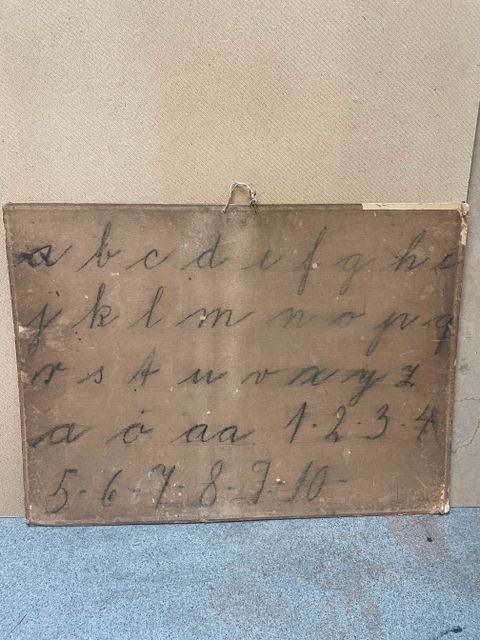 a b c d e f g h i
j k l m n o p q
r s t u v x y z
æ ø aa 1-2-3-4
5-6-7-8-9-10-